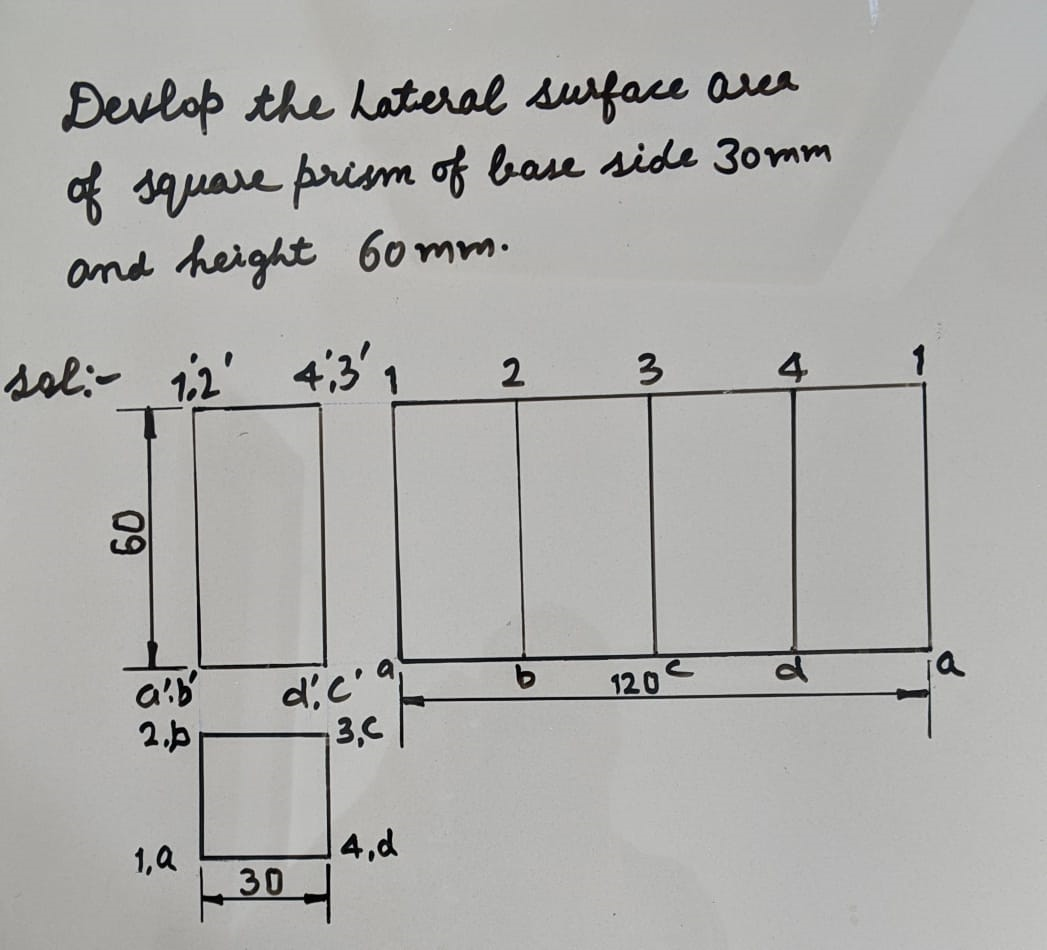 Devlop the Lateral surface area
of square prism of base side 30mm
and height 60mm.
sol:- 1',2' 4',3' 1 2 3 4 1
60
a',b' d',c' a b c d a
120
2,b 3,c
1,a 4,d
30